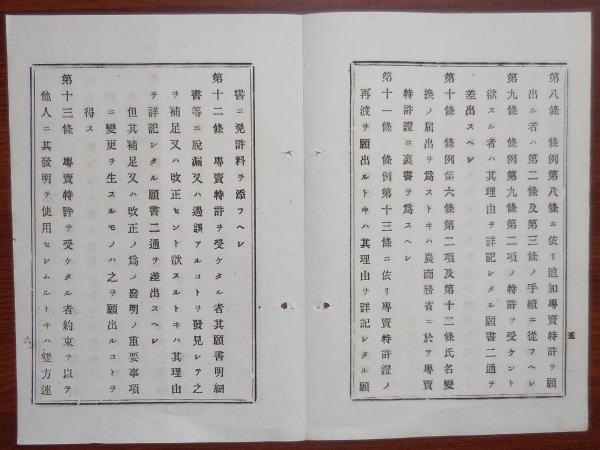 第八條　條例第八條ニ依リ追加專賣特許ヲ願
出ル者ハ第二條及第三條ノ手續ニ從フヘシ
第九條　條例第九條第二項ノ特許ヲ受ケント
欲スル者ハ其理由ヲ詳記シタル願書二通ヲ
差出スヘシ
第十條　條例第六條第二項及第十二條氏名變
換ノ届出ヲ爲ストキハ農商務省ニ於テ專賣
特許證ニ裏書ヲ爲スヘシ
第十一條　條例第十三條ニ依リ專賣特許證ノ
再渡ヲ願出ルトキハ其理由ヲ詳記シタル願
書ニ免許料ヲ添フヘシ
第十二條　專賣特許ヲ受ケタル者其願書明細
書等ニ脱漏又ハ過誤アルコトヲ發見シテ之
ヲ補足又ハ改正セント欲スルトキハ其理由
ヲ詳記シタル願書二通ヲ差出スヘシ
但其補足又ハ改正ノ爲メ發明ノ重要事項
ニ變更ヲ生スルモノハ之ヲ願出ルコトヲ
得ス
第十三條　專賣特許ヲ受ケタル者約束ヲ以テ
他人ニ其發明ヲ使用セシムルトキハ雙方連